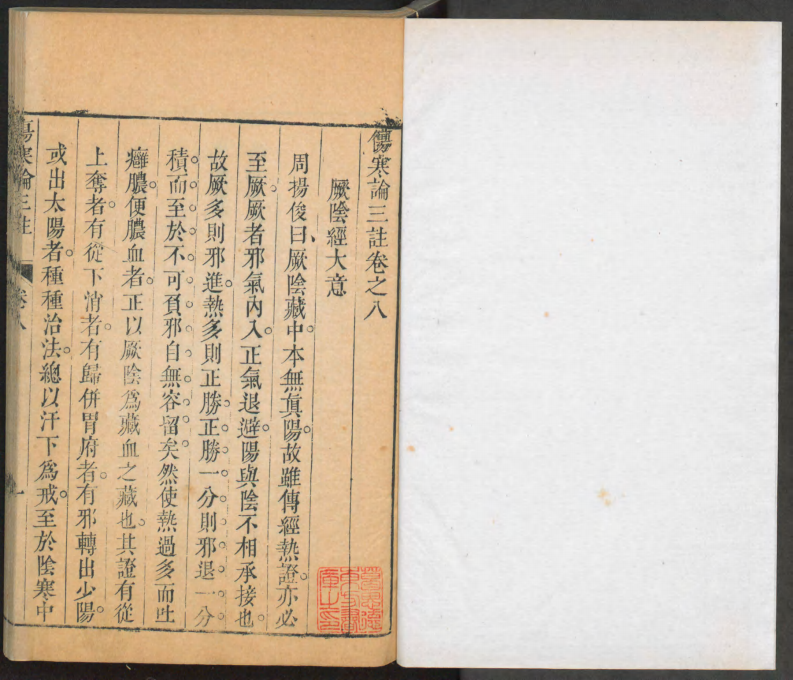 傷寒論三註卷之八
厥陰經大意
周揚俊曰厥陰藏中本無真陽故雖傳經熱證亦必
至厥厥者邪氣內入正氣退避陽與陰不相承接也
故厥多則邪進熱多則正勝正勝一分則邪退一分
積而至於不可頁邪自無容留矣然使熱過多而吐
癰膿便膿血者正以厥陰爲藏血之藏也其證有從
上奪者有從下消者有歸併胃府者有邪轉出少陽
或出太陽者種種治法總以汗下爲戒至於陰寒中
傷寒論三註 卷八 一